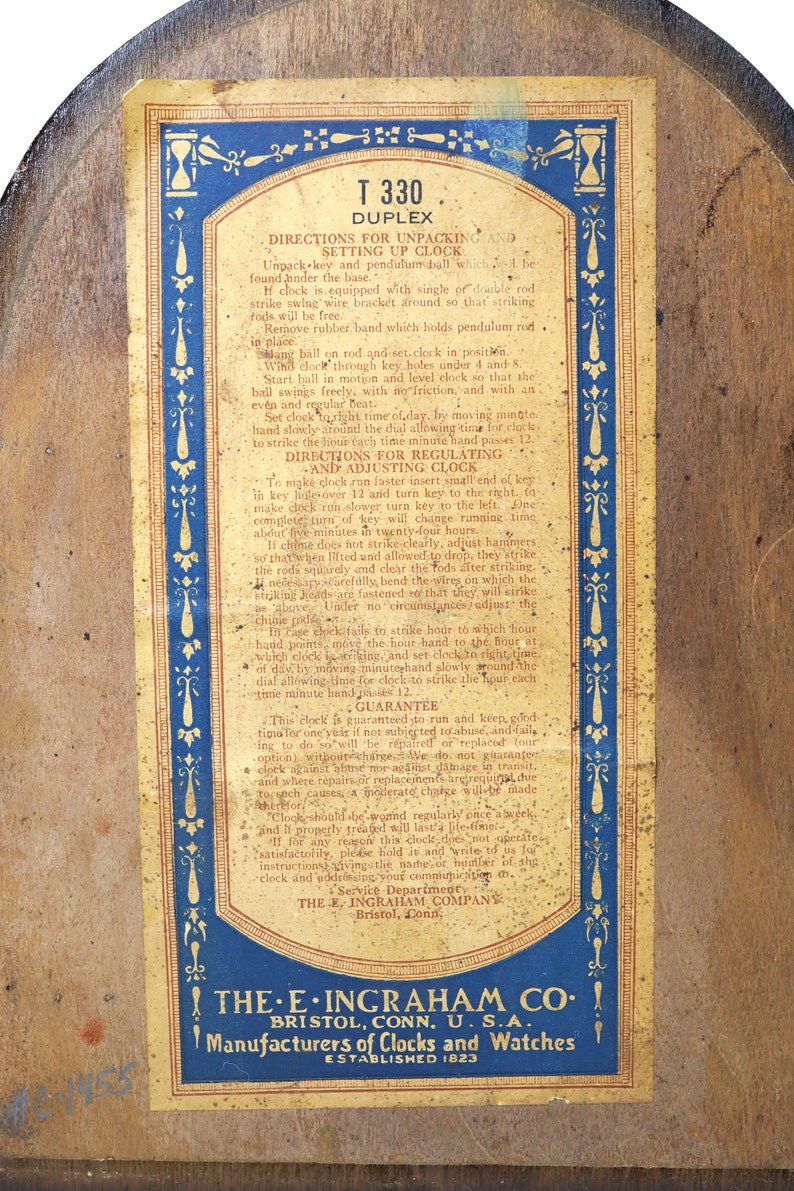 T 330
DUPLEX
DIRECTIONS FOR UNPACKING AND
SETTING UP CLOCK
Unpack key and pendulum ball which will be
found under the base.
If clock is equipped with single or double rod
strike swing wire bracket around so that striking
rods will be free.
Remove rubber band which holds pendulum rod
in place.
Hang ball on rod and set clock in position.
Wind clock through key holes under 4 and 8.
Start ball in motion and level clock so that the
ball swings freely, with no friction, and with an
even and regular beat.
Set clock to right time of day, by moving minute
hand slowly around the dial allowing time for clock
to strike the hour each time minute hand passes 12.
DIRECTIONS FOR REGULATING
AND ADJUSTING CLOCK
To make clock run faster insert small end of key
in key hole over 12 and turn key to the right, to
make clock run slower turn key to the left. One
complete turn of key will change running time
about five minutes in twenty-four hours.
If chime does not strike clearly, adjust hammers
so that when lifted and allowed to drop, they strike
the rods squarely and clear the rods after striking.
If necessary, carefully bend the wires on which the
striking heads are fastened so that they will strike
as above. Under no circumstances adjust the
chime rods.
In case clock fails to strike hour to which hour
hand points, move the hour hand to the hour at
which clock is striking, and set clock to right time
of day by moving minute hand slowly around the
dial allowing time for clock to strike the hour each
time minute hand passes 12.
GUARANTEE
This clock is guaranteed to run and keep good
time for one year if not subjected to abuse, and fail-
ing to do so will be repaired or replaced (our
option) without charge. We do not guarantee
clock against abuse nor against damage in transit,
and where repairs or replacements are required due
to such causes, a moderate charge will be made
therefor.
Clock should be wound regularly once a week,
and if properly treated will last a life-time.
If for any reason this clock does not operate
satisfactorily, please hold it and write to us for
instructions, giving the name or number of the
clock and addressing your communication to
Service Department
THE E. INGRAHAM COMPANY
Bristol, Conn.
THE·E·INGRAHAM CO·
BRISTOL, CONN. U. S. A.
Manufacturers of Clocks and Watches
ESTABLISHED 1823
#C-1455